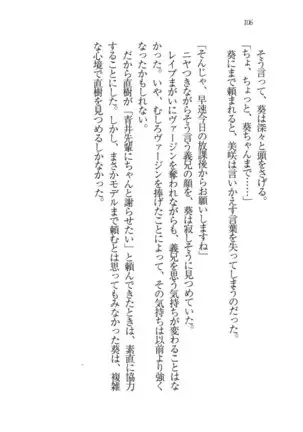 106
そう言って、葵は深々と頭をさげる。
「ちょ、ちょっと、葵ちゃんまで……」
葵にまで頼まれると、美咲は言いかえす言葉を失ってしまうのだった。
「そんじゃ、早速今日の放課後からお願いしますね」
ニヤつきながらそう言う義兄の顔を、葵は寂しそうに見つめていた。
レイプまがいにヴァージンを奪われながらも、義兄を思う気持ちが変わることはな
かった。いや、むしろヴァージンを捧げたことによって、その気持ちは以前より強く
なったかもしれない。
だから直樹が「青井先輩にちゃんと謝らせたい」と頼んできたときは、素直に協力
することにした。しかし、まさかモデルまで頼むとは思ってもみなかった葵は、複雑
な心境で直樹を見つめるしかなかった。